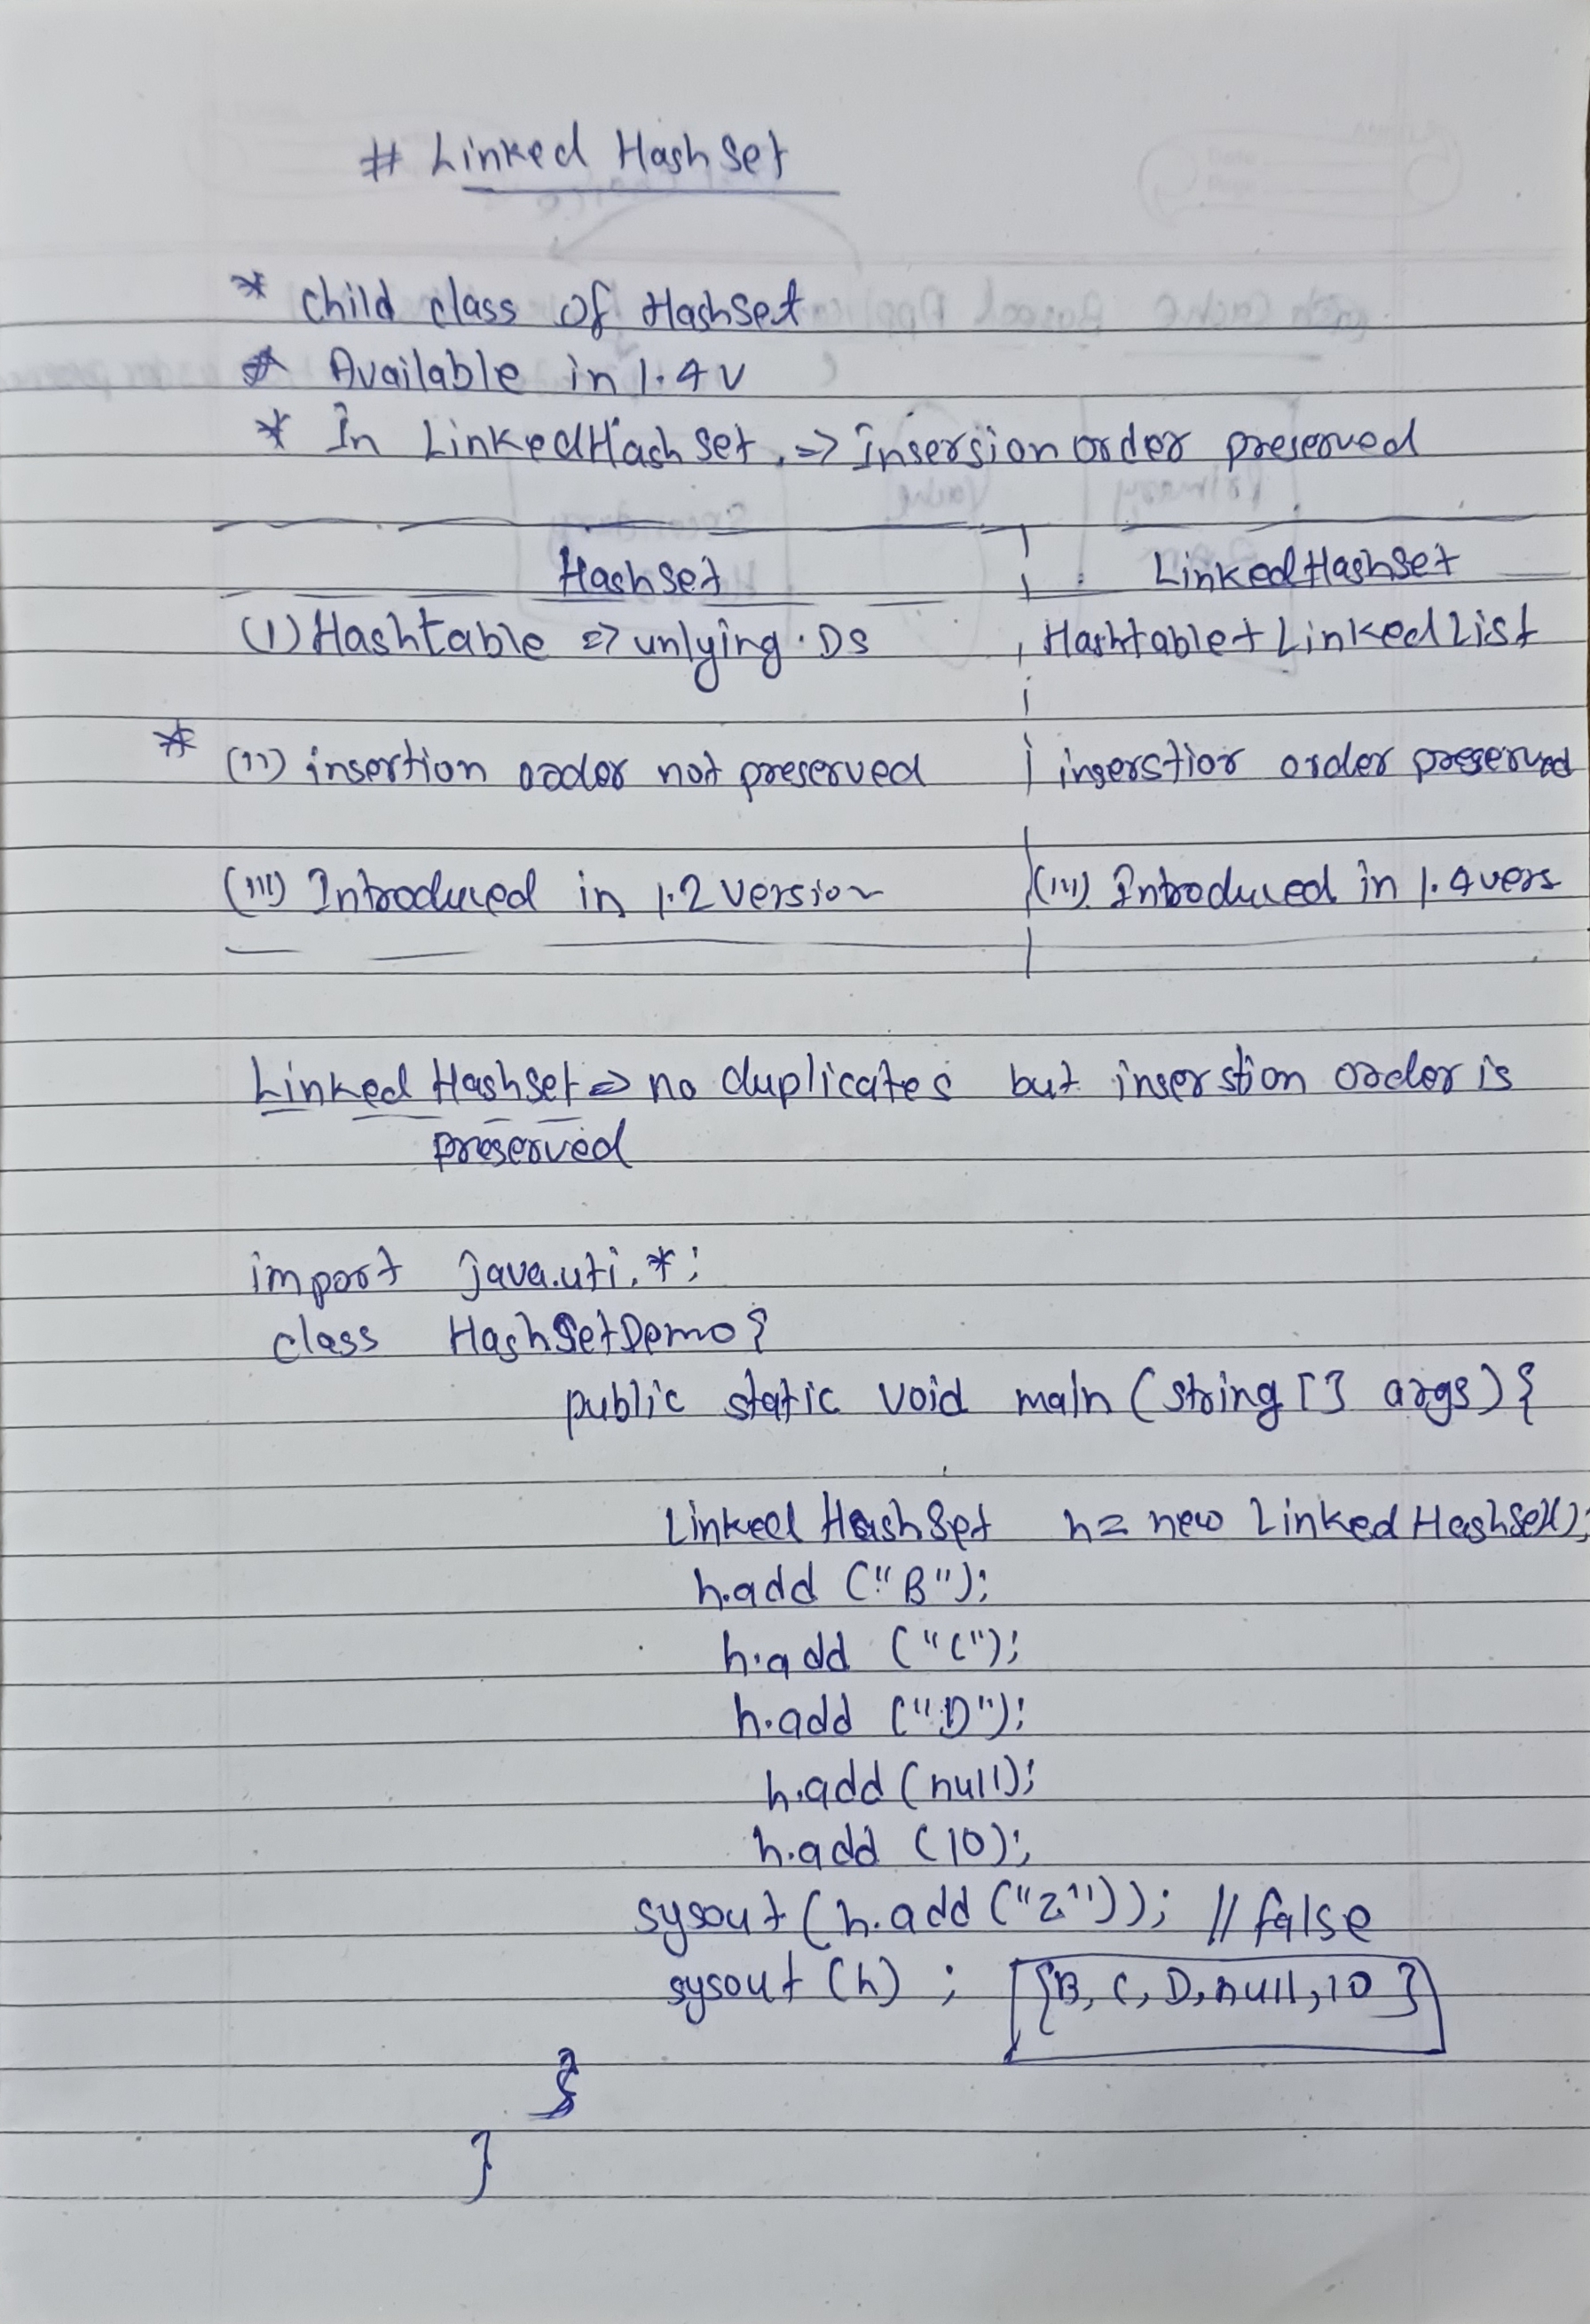 # Linked HashSet
* child class of HashSet
* Available in 1.4 v
* In LinkedHash Set. => insersion order preserved
HashSet LinkedHashSet
(1) Hashtable => unlying. DS Hashtable + Linked List
* (ii) insertion order not preserved inserstior order preserved
(iii) Introduced in 1.2 version (iii). Introduced in 1.4 vers
Linked HashSet => no duplicates but inserstion order is
preserved
import java.uti.*;
class HashSetDemo {
public static void main (string [] args) {
Linked HashSet h = new Linked HashSet();
h.add ("B");
h.add ("C");
h.add ("D");
h.add (null);
h.add (10);
sysout (h.add ("z")); // false
sysout (h) ; {B, C, D, null, 10 }
}
}